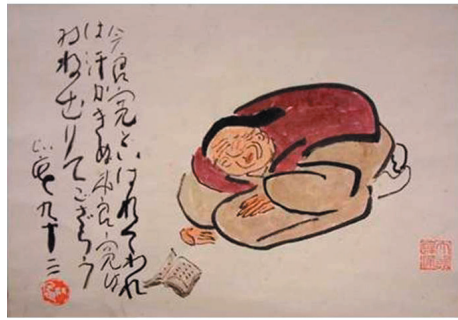 今良寛といはれてわれ
は汗かきぬ本良寛は
ゐねむりてござらう
九十二